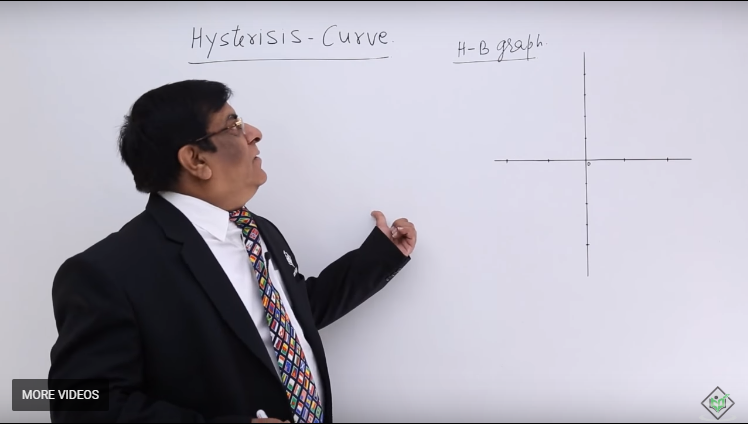 Hysterisis-Curve.
H-B graph.
MORE VIDEOS